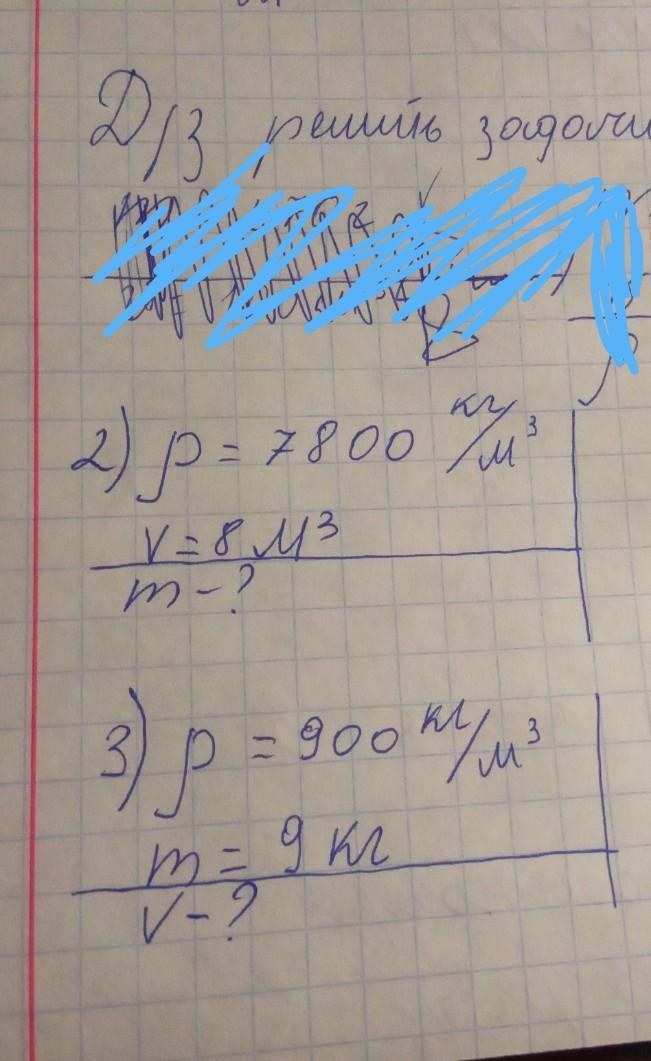 Д/З решить задачи
2) ρ = 7800 кг/м³
V = 8 м³
m - ?
3) ρ = 900 кг/м³
m = 9 кг
V - ?